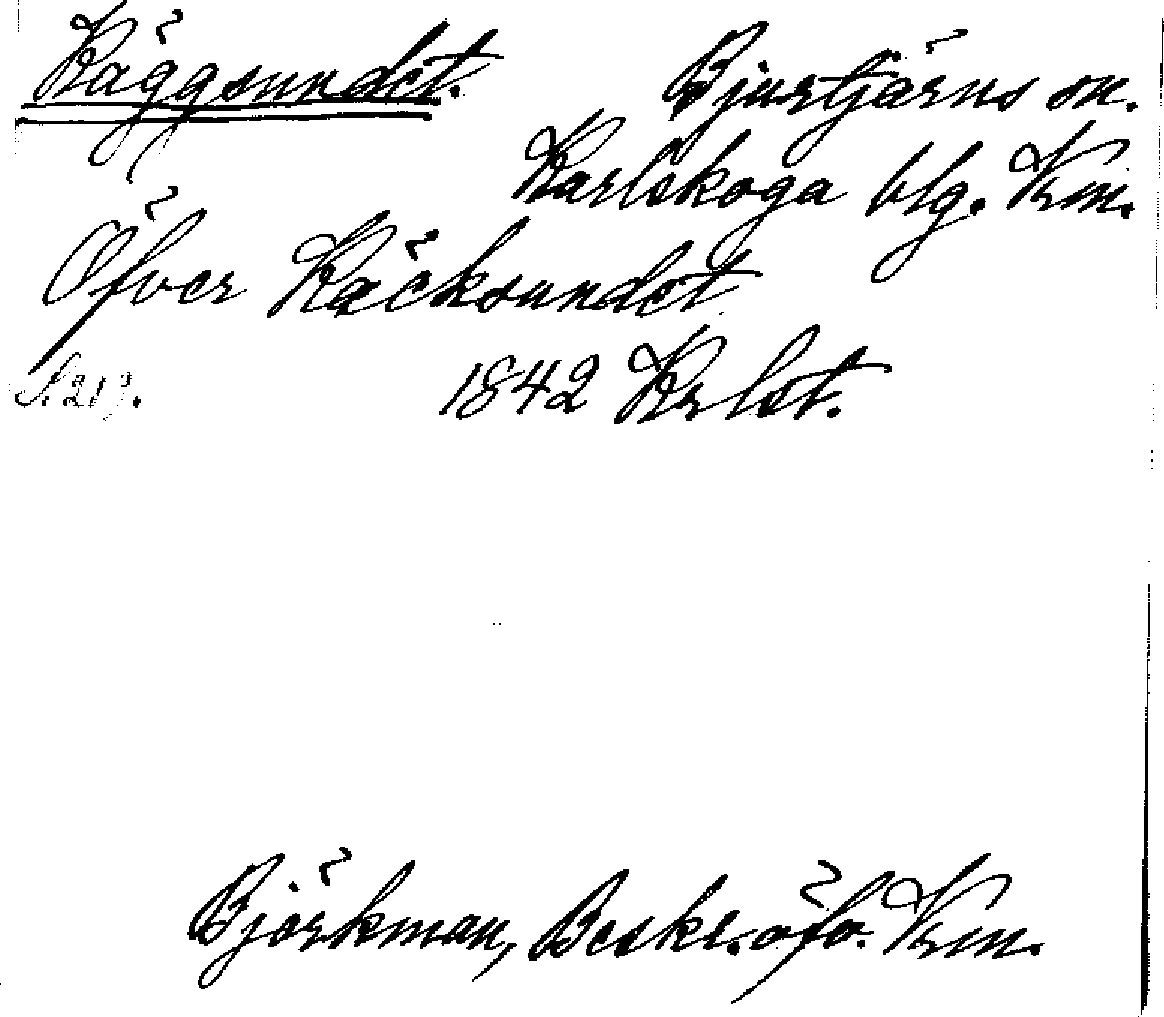 Käggsundet. Bjurtjärns sn.
Karlskoga blg. Krm.
Öfver Käcksundet
S. 213. 1842 Krlst.
Björkman, Beskr. öfv. Krm.